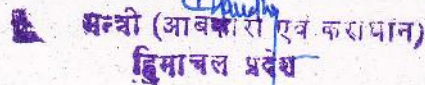 मन्त्री (आबकारी एवं कराधान)
हिमाचल प्रदेश